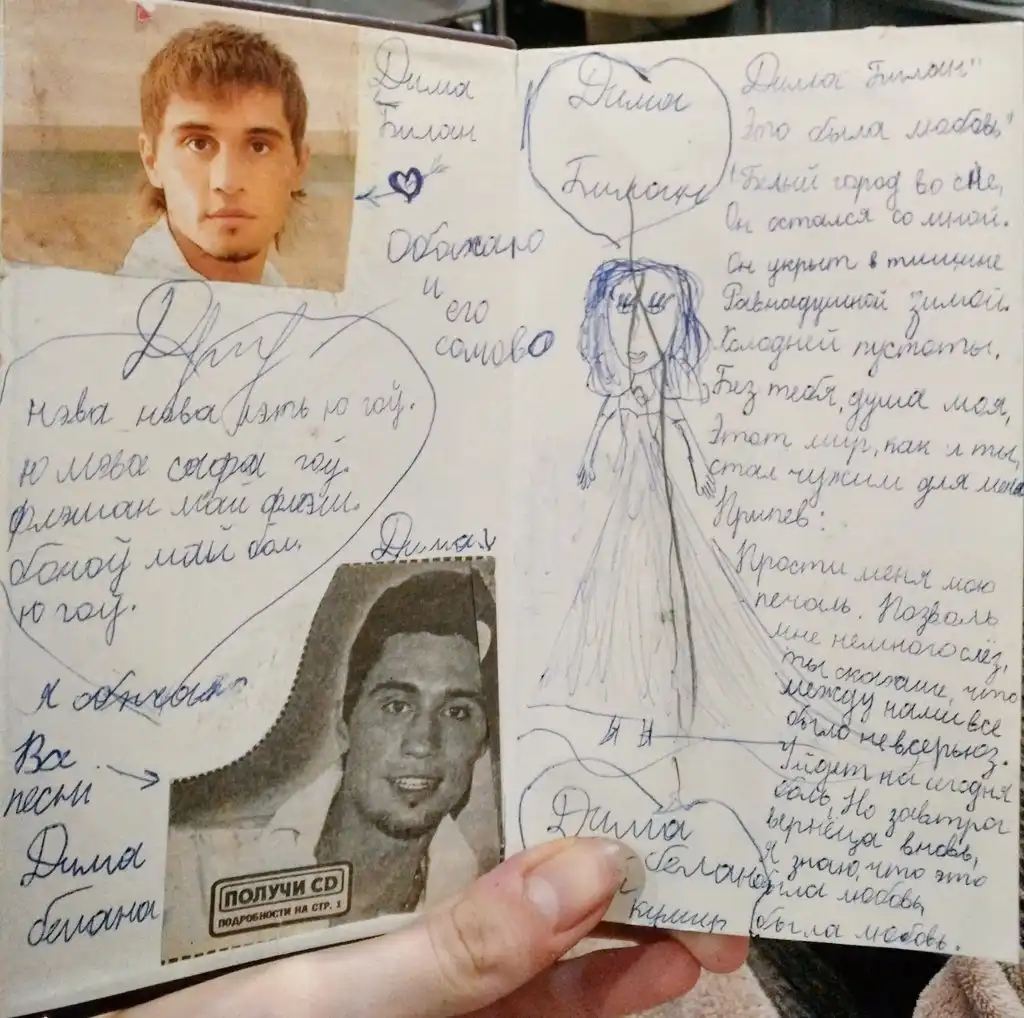 Дима
Билан
Обажаю
и
его
самово
Дима
нэва нэва лэть ю гоў.
ю мэва сафа гоў.
флэшан май флэш.
боноў май бон.
ю гоў.
Дима
я обажаю
Все
песни
Дима
белана
ПОЛУЧИ CD
ПОДРОБНОСТИ НА СТР. 1
Дима
Билан
Дима
белан
й
кумир
Дима Билан"
Это была любовь"
"Белый город во сне,
Он остался со мной.
Он укрыт в тишине
Равнадушной зимой.
Холодней пустоты.
Без тебя, душа моя,
Этот мир, как и ты,
стал чужим для меня
Припев:
Прости меня мою
печаль. Позволь
мне немного слёз,
ты скажешь, что
между нами все
было не всерьюз.
Уйдет на сегодня
боль, Но завтра
вернёца вновь,
Я знаю, что это
была любовь,
была любовь.